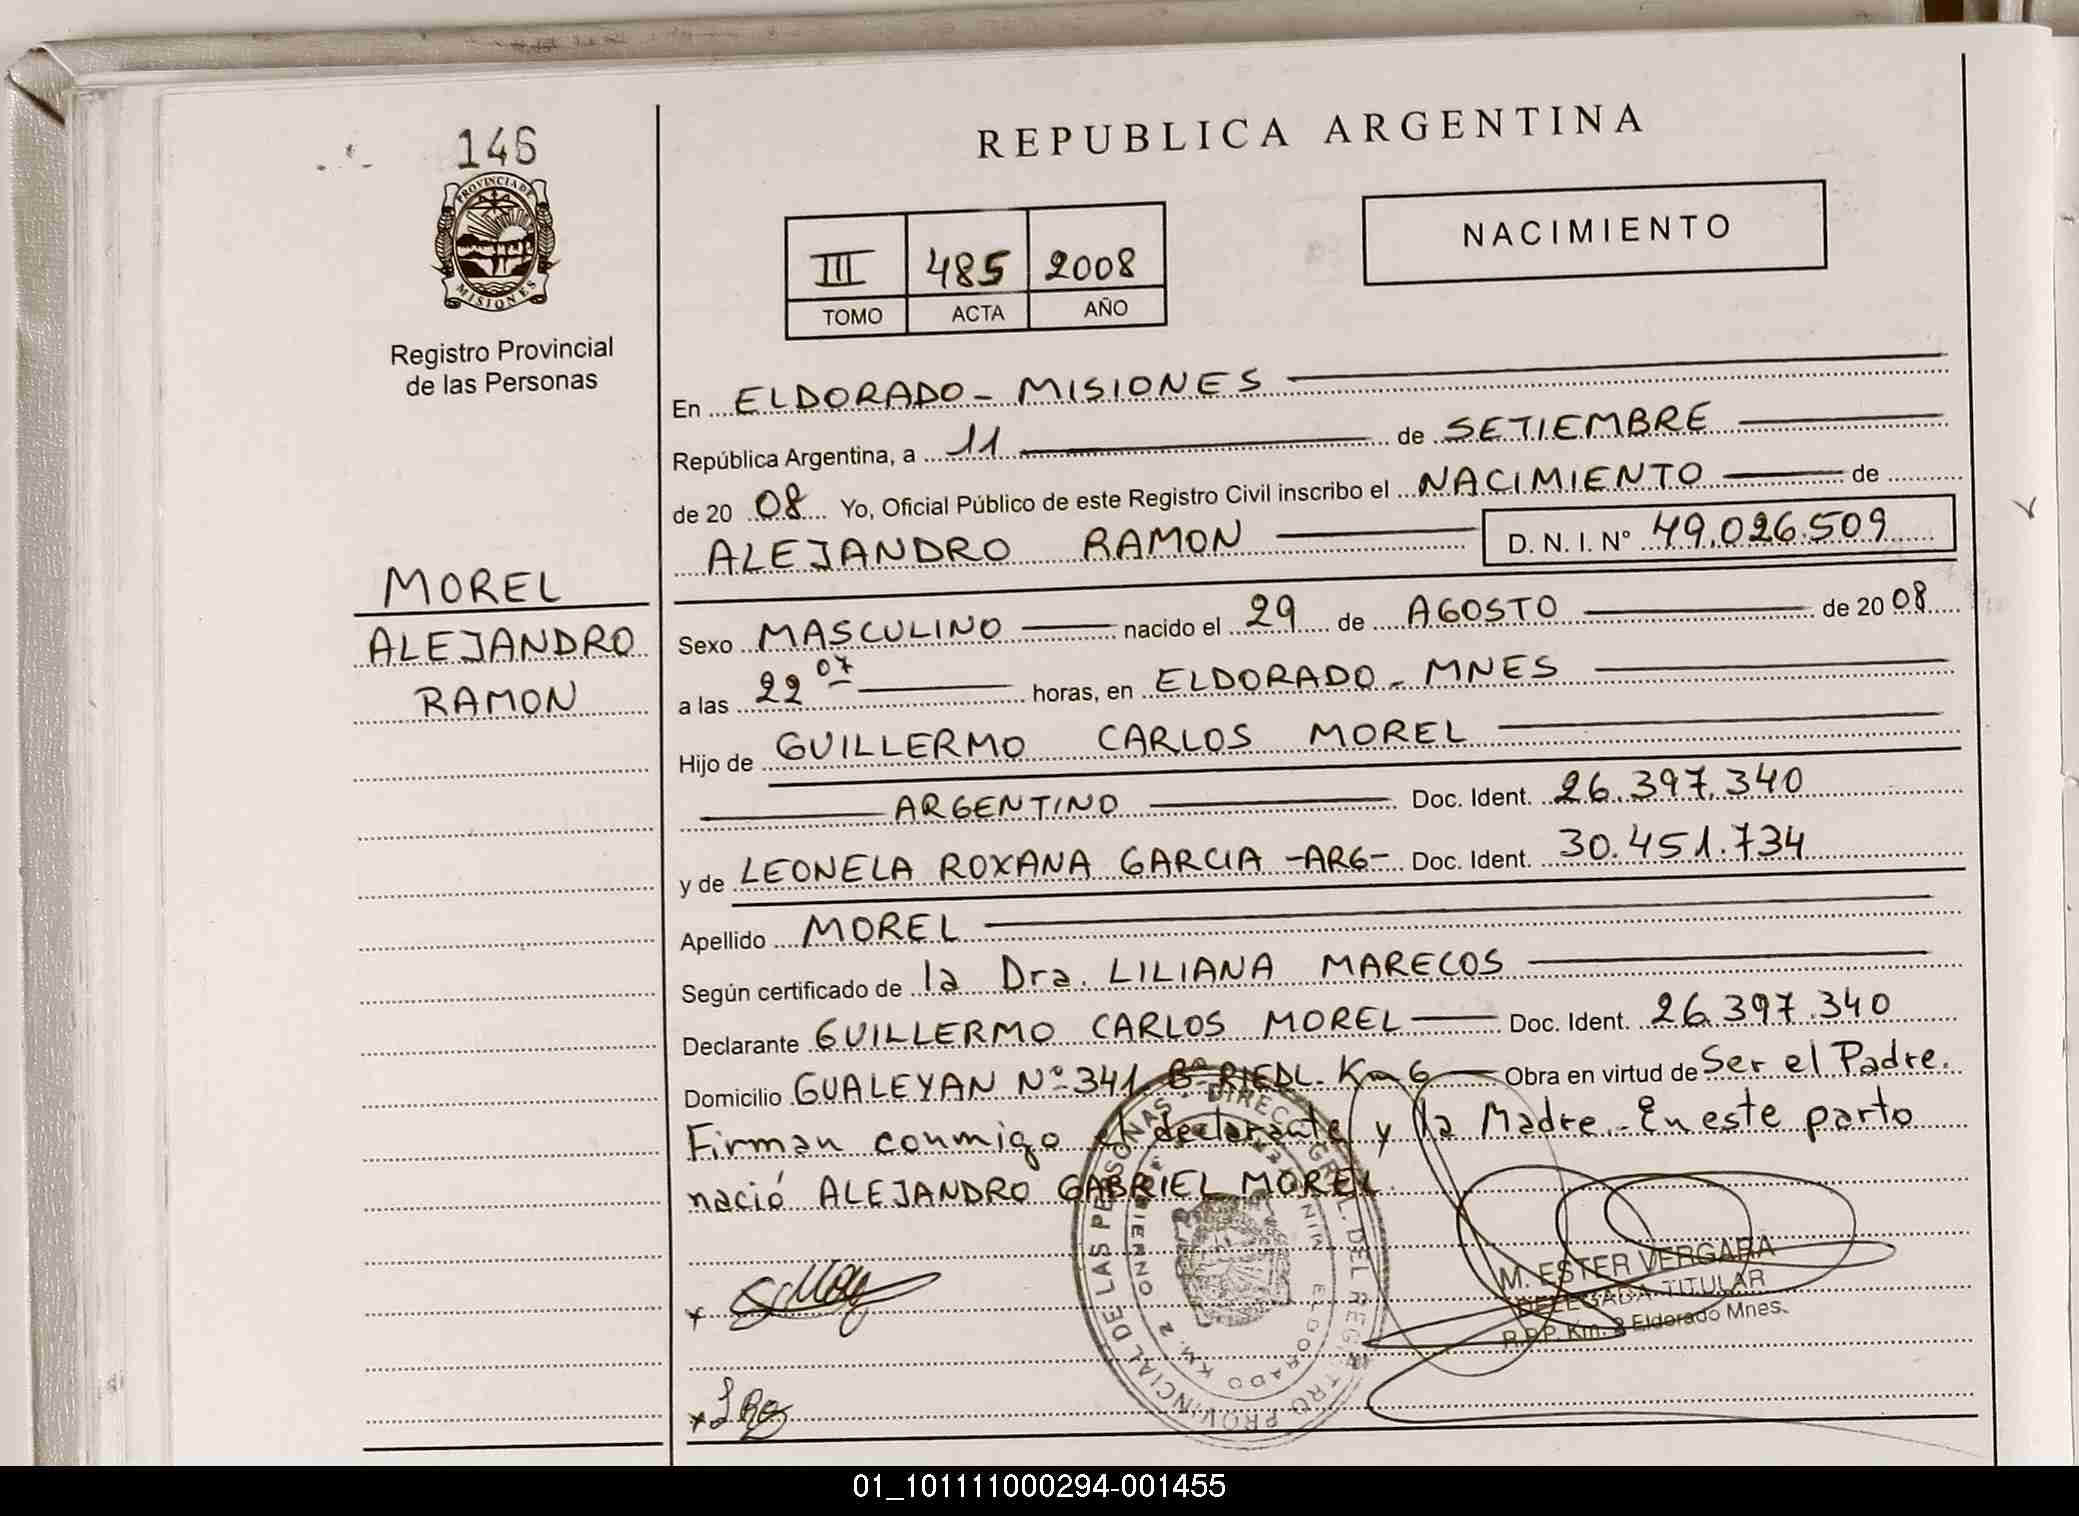 146
PROVINCIA DE
MISIONES
Registro Provincial
de las Personas
MOREL
ALEJANDRO
RAMON
REPUBLICA ARGENTINA
III 485 2008
TOMO ACTA AÑO
NACIMIENTO
En ELDORADO - MISIONES
República Argentina, a 11 de SETIEMBRE
de 20 08 Yo, Oficial Público de este Registro Civil inscribo el NACIMIENTO de
ALEJANDRO RAMON D. N. I. Nº 49.026.509
Sexo MASCULINO nacido el 29 de AGOSTO de 20 08
a las 22 07 horas, en ELDORADO - MNES
Hijo de GUILLERMO CARLOS MOREL
ARGENTINO Doc. Ident. 26.397.340
y de LEONELA ROXANA GARCIA -ARG- Doc. Ident. 30.451.734
Apellido MOREL
Según certificado de la Dra. LILIANA MARECOS
Declarante GUILLERMO CARLOS MOREL Doc. Ident. 26.397.340
Domicilio GUALEYAN Nº 341 Bº RIEDL. Km 6 Obra en virtud de Ser el Padre.
Firman conmigo el declarante y la Madre - En este parto
nació ALEJANDRO GABRIEL MOREL.
DIREC. GRAL. DEL REGISTRO PROVINCIAL DE LAS PERSONAS
ELDORADO KM. 2
M. ESTER VERGARA
DELEGADA TITULAR
R.P.P. Km. 2 Eldorado Mnes.
01_101111000294-001455